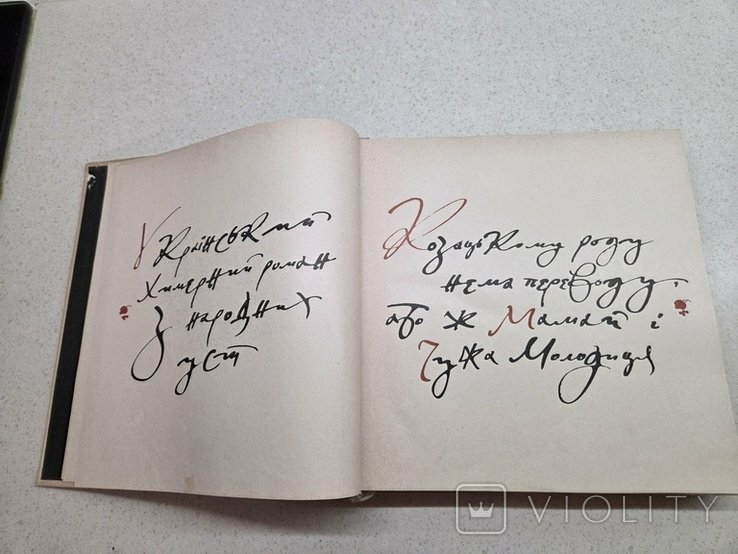 Український
химерний роман
з народних
уст
Козацькому роду
нема переводу,
або ж Мамай і
Чужа Молодиця
VIOLITY